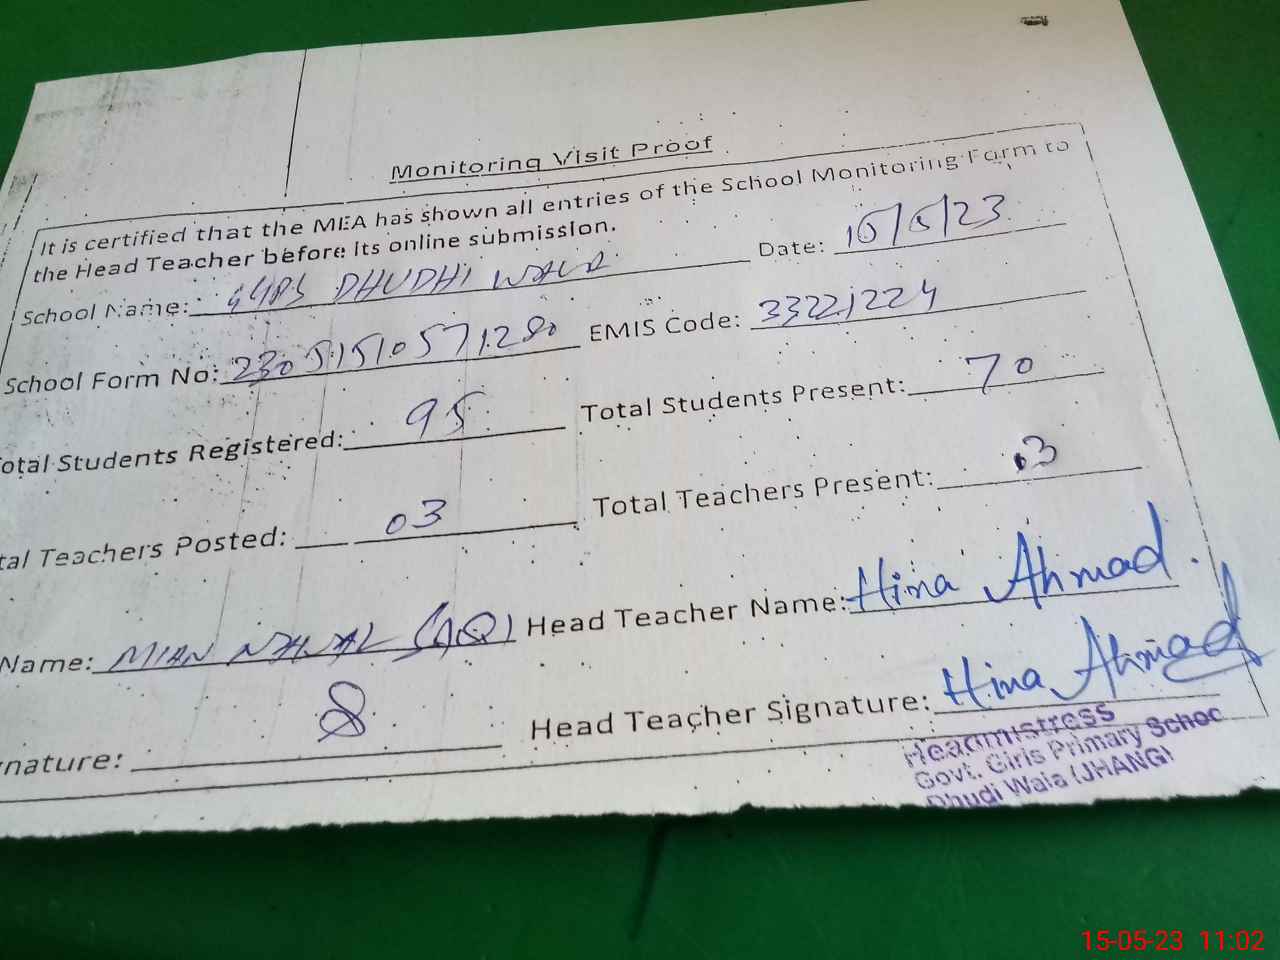 Monitoring Visit Proof
It is certified that the MEA has shown all entries of the School Monitoring Form to
the Head Teacher before its online submission.
School Name: GGPS DHUDHI WALA Date: 15/5/23
School Form No: 23051510571280 EMIS Code: 33221224
otal Students Registered: 95 Total Students Present: 70
tal Teachers Posted: 03 Total Teachers Present: 03
Name: MIAN Head Teacher Name: Hina Ahmad.
nature: Head Teacher Signature: Hina Ahmad
Headmistress
Govt. Girls Primary Schoo
Dhudi Wala (JHANG)
15-05-23 11:02